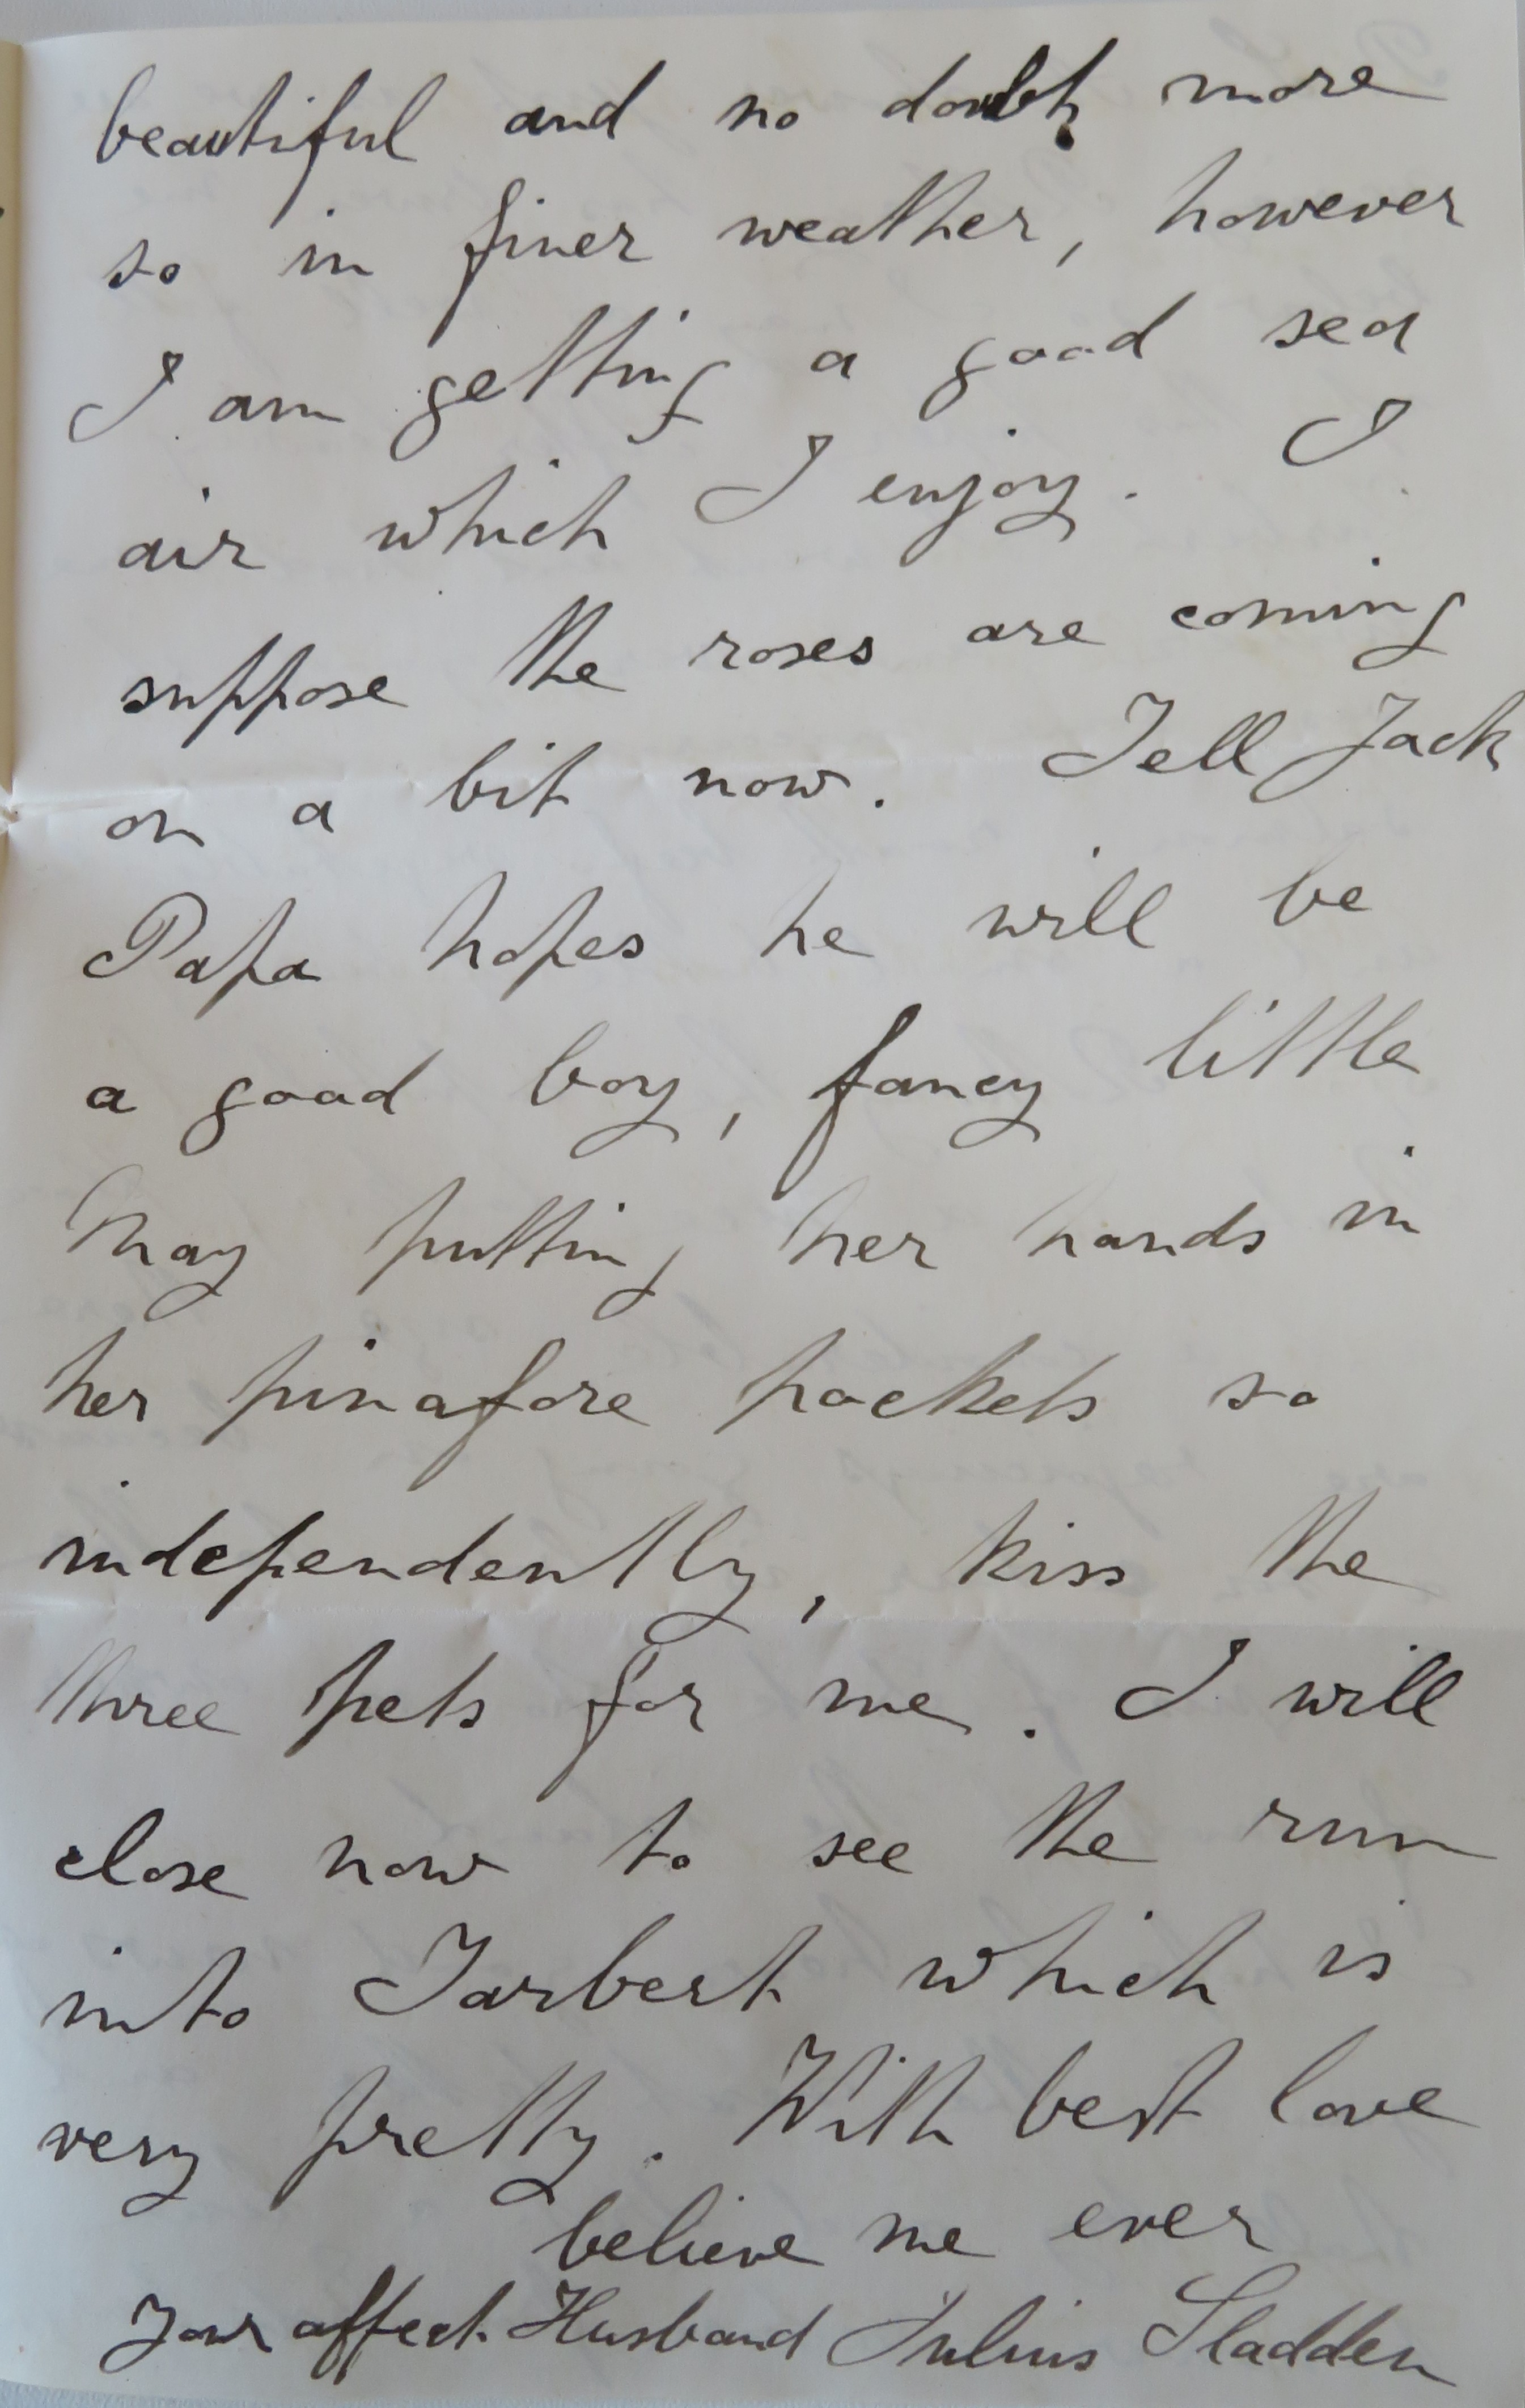 beautiful and no doubt more
so in finer weather, however
I am getting a good sea
air which I enjoy. I
suppose the roses are coming
on a bit now. Tell Jack
Papa hopes he will be
a good boy, fancy little
May putting her hands in
her pinafore pockets so
independently, kiss the
three pets for me. I will
close now to see the run
into Tarbert which is
very pretty. With best love
believe me ever
Your affect. Husband Julius Sladden